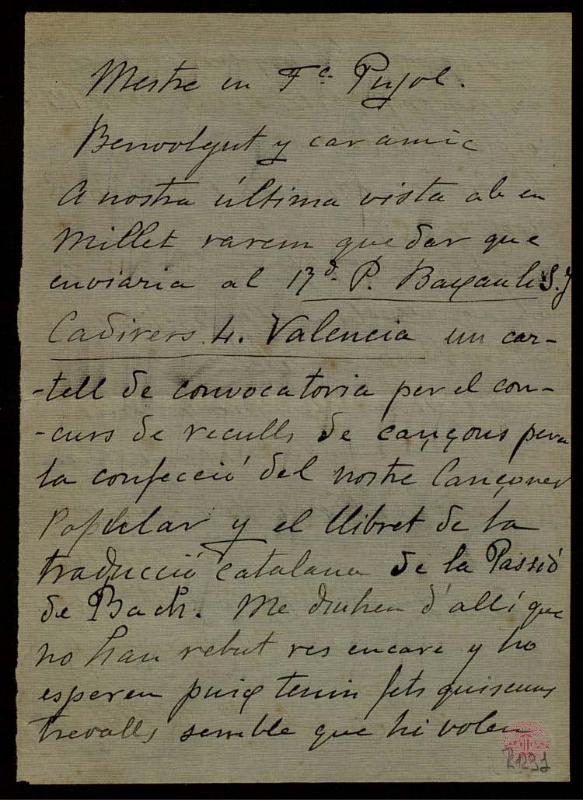 Mestre en Fc. Pujol.
Benvolgut y car amic
A nostra última vista ab en
Millet varem quedar que
enviaria al Rd. P. Baxauli S.J
Cadirers 4. Valencia un car-
-tell de convocatoria per el con-
-curs de reculls de cançons pera
la confecció del nostre Cançoner
Popular y el llibret de la
traducció catalana de la Passió
de Bach. Me diuhen d'allí que
no han rebut res encare y ho
esperen puig tenin fets quiscuns
trevalls semble que hi volen